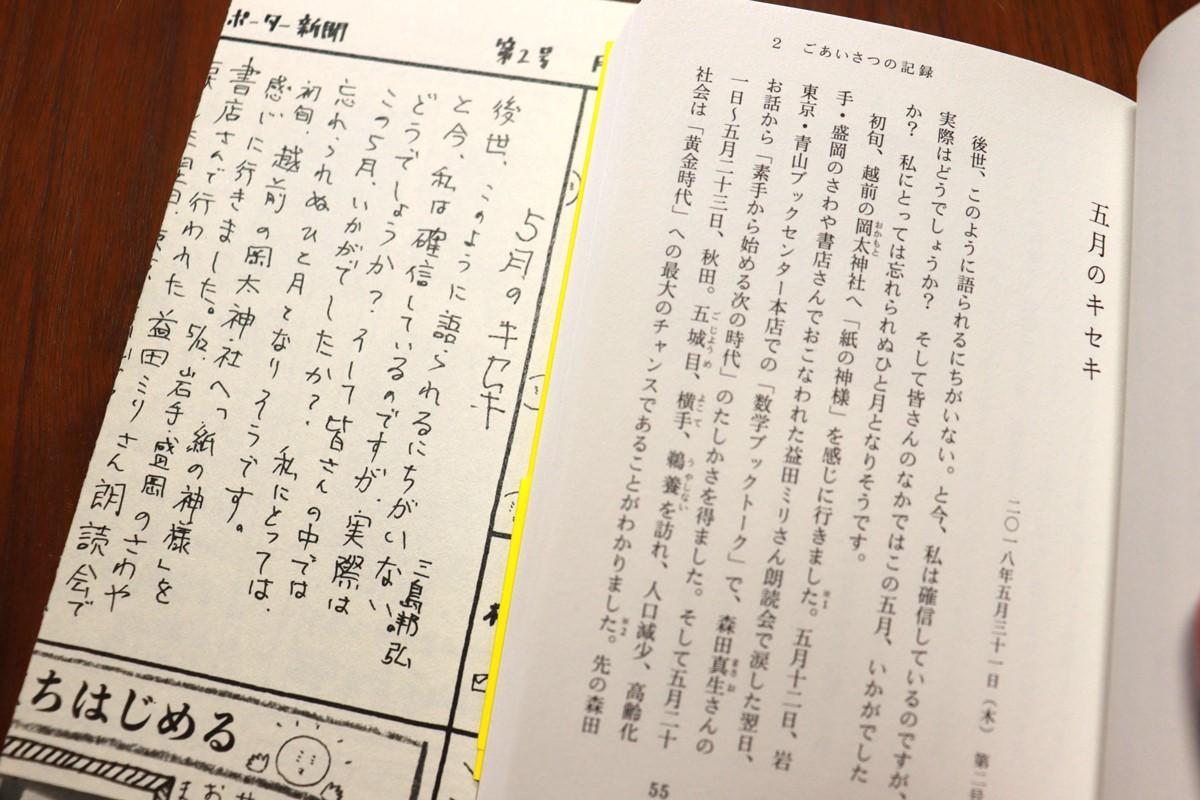 ポーター新聞
第2号
5月のキセキ
三島邦弘
後世、このように語られるにちがいない。
と今、私は確信しているのですが、実際は
どうでしょうか?そして皆さんの中では
この5月、いかがでしたか?私にとっては、
忘れられぬひと月となりそうです。
初旬、越前の岡太神社へ「紙の神様」を
感じに行きました。5/12、岩手・盛岡のさわや
書店さんで行われた益田ミリさん朗読会で
ちはじめる
2 ごあいさつの記録
五月のキセキ
二〇一八年五月三十一日(木) 第二号
後世、このように語られるにちがいない。と今、私は確信しているのですが、
実際はどうでしょうか? そして皆さんのなかではこの五月、いかがでした
か? 私にとっては忘れられぬひと月となりそうです。
初旬、越前の岡太神社へ「紙の神様」を感じに行きました。五月十二日、岩
手・盛岡のさわや書店さんでおこなわれた益田ミリさん朗読会で涙した翌日、
東京・青山ブックセンター本店での「数学ブックトーク」で、森田真生さんの
お話から「素手から始める次の時代」のたしかさを得ました。そして五月二十
一日〜五月二十三日、秋田。五城目、横手、鵜養を訪れ、人口減少、高齢化
社会は「黄金時代」への最大のチャンスであることがわかりました。先の森田
おかもと
※1
まさお
ごじょうめ
よこて
うやしない
※2
55